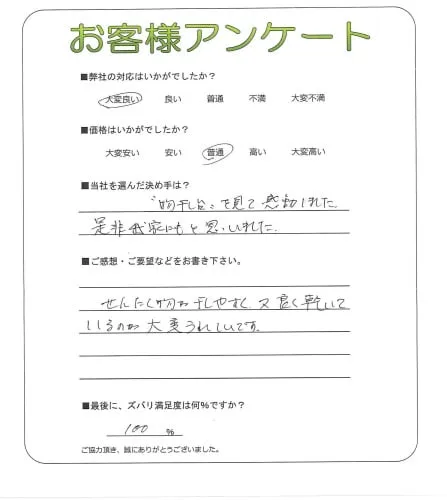 お客様アンケート
■弊社の対応はいかがでしたか?
大変良い 良い 普通 不満 大変不満
■価格はいかがでしたか?
大変安い 安い 普通 高い 大変高い
■当社を選んだ決め手は?
"物干し台"を見て感動しました。
是非我家にもと思いました。
■ご感想・ご要望などをお書き下さい。
せんたく物が干しやすく、又良く乾いて
いるのが大変うれしいです。
■最後に、ズバリ満足度は何%ですか?
100 %
ご協力頂き、誠にありがとうございました。